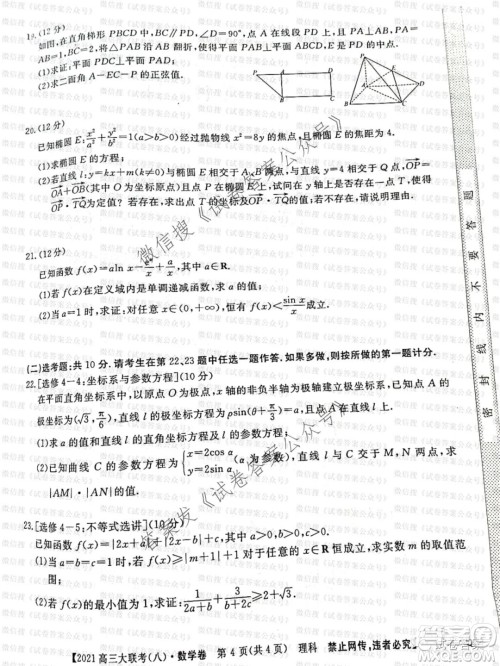 19.(12分)
如图,在直角梯形 PBCD 中,BC∥PD,∠D=90°,点 A 在线段 PD 上,且 PA⊥AB,PA=
AB=1,BC=2,将△PAB 沿 AB 翻折,使得平面 PAB⊥平面 ABCD.
(1)求证:平面 PDC⊥平面 PAD;
(2)求二面角 A—EC—P 的正弦值.
P A D B C
P E A D B C
20.(12分)
已知椭圆 E: x²/a² + y²/b² =1(a>b>0)经过抛物线 x²=8y 的焦点,且椭圆 E 的焦距为 4.
(1)求椭圆 E 的方程;
(2)若直线 l:y=kx+m(k≠0)与椭圆 E 相交于 A,B 两点,与直线 y=4 相交于 Q 点,P 是椭圆 E 上一点且满足 OP=
OA+OB(其中 O 为坐标原点),试问在 y 轴上是否存在点 T,使得
OP·TQ 为定值?若存在,求出点 T 的坐标及 OP·TQ 的值;若不存在,请说明理由.
21.(12分)
已知函数 f(x)=aln x− eˣ/x + a/x,其中 a∈R.
(1)若 f(x)在定义域内是单调函数,求 a 的值;
(2)当 a=1 时,求证:对任意 x∈(0,+∞),恒有 f(x)< sin x/x 成立.
(二)选考题:共 10 分.请考生在第 22、23 题中任选一题作答.如果多做,则按所做的第一题计分.
22.[选修 4—4:坐标系与参数方程](10 分)
在平面直角坐标系中,以坐标原点为极点,x 轴的非负半轴为极轴建立极坐标系,点 A 的
极坐标为(√3,π/6),直线 l 的极坐标方程为 ρsin(θ+π/3)=a,且点 A 在直线 l 上.
(1)求 a 的值和直线 l 的直角坐标方程及直线 l 的参数方程;
(2)已知曲线 C 的参数方程为{x=2cosα, y=2sinα (α 为参数),直线 l 与 C 交于 M,N 两点,求
|AM|·|AN|的值.
23.[选修 4—5:不等式选讲](10 分)
已知函数 f(x)=|2x+a|+|2x−3b|+c,其中 a>0,b>0,c>0.
(1)当 a=b=c=1 时,若 f(x)≥|m+1|+1 对于任意的 x∈R 恒成立,求实数 m 的取值范
围;
(2)若 f(x)的最小值为 1,求证: 1/(2a+b) + 2/(3b+2c) ≥ 3/2.
【2021 高三大联考(八)·数学卷 第 4 页(共 4 页) 理科 禁止网传,违者必究】
密 封 线 内 不 要 答 题
微信搜《试卷答案公众号》
答案发《试卷答案公众号》